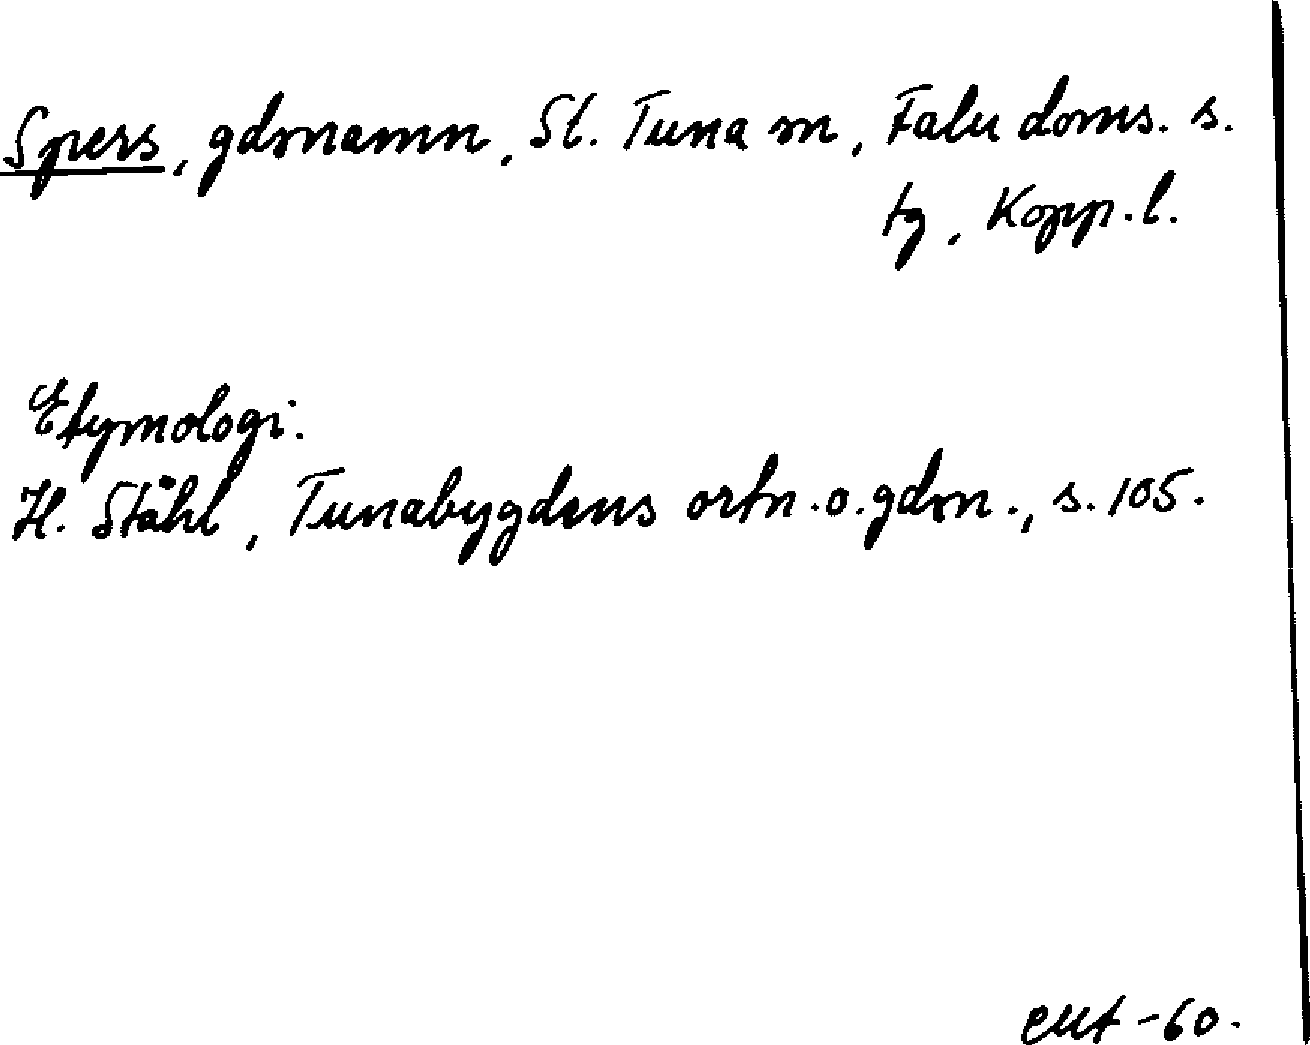 Spers, gdrnamn, St. Tuna sn, Falu doms. s.
tg, Kopp. l.
Etymologi.
H. Ståhl, Tunabygdens ortn. o. gdrn., s. 105.
-60.